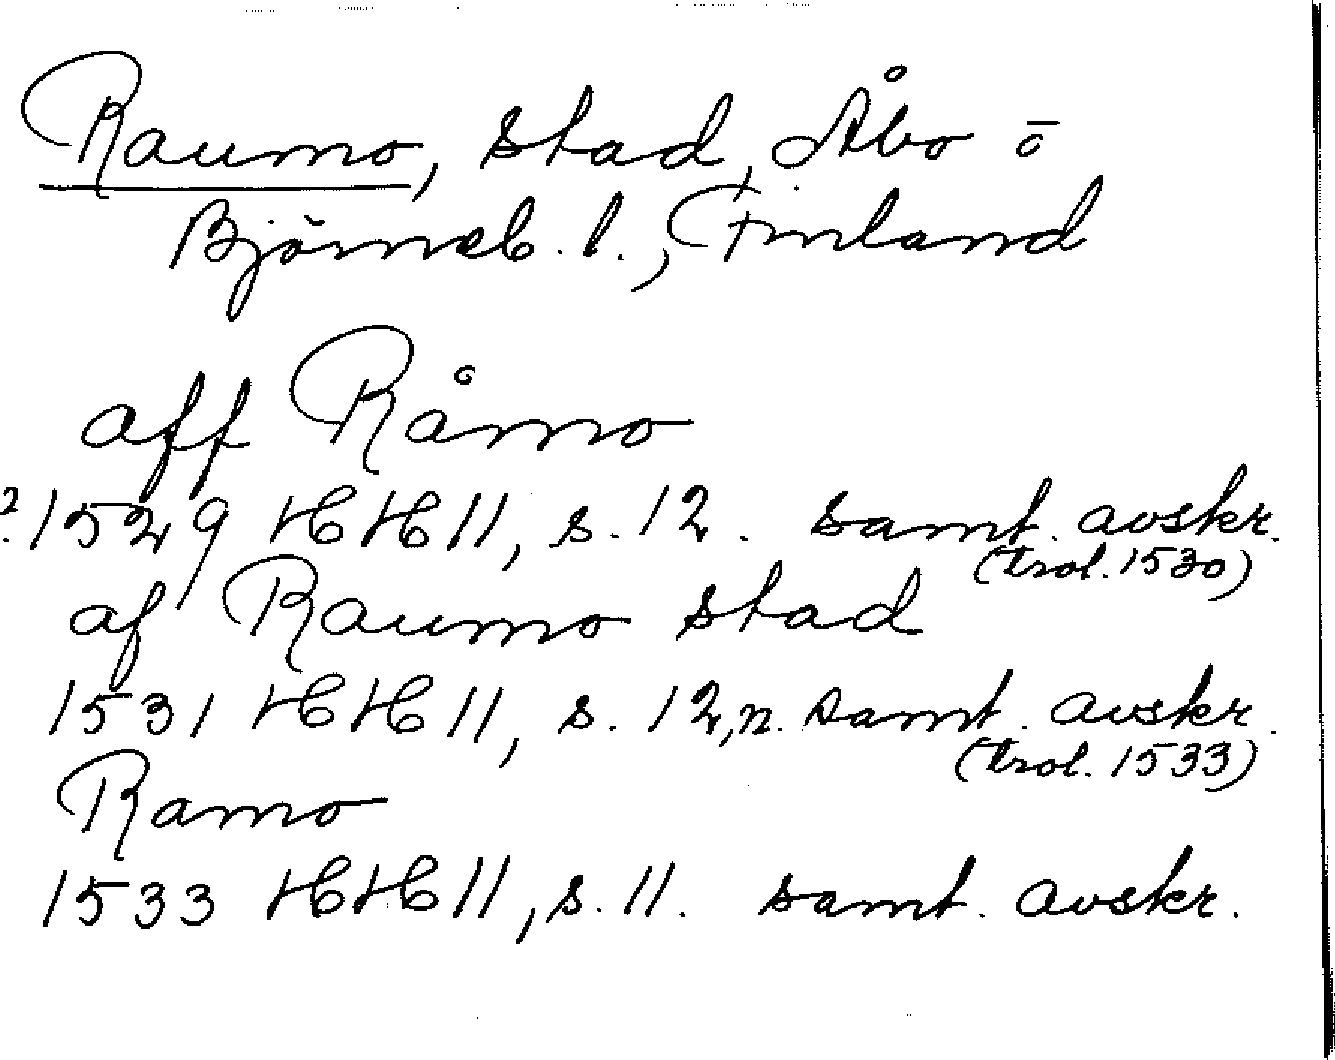 Raumo, stad, Åbo o
Björneb. l., Finland
aff Råmo
?1529 HH 11, s. 12. samt. avskr.
(trol. 1530)
af Raumo stad
1531 HH 11, s. 12, n. samt. avskr.
(trol. 1533)
Ramo
1533 HH 11, s. 11. samt. avskr.